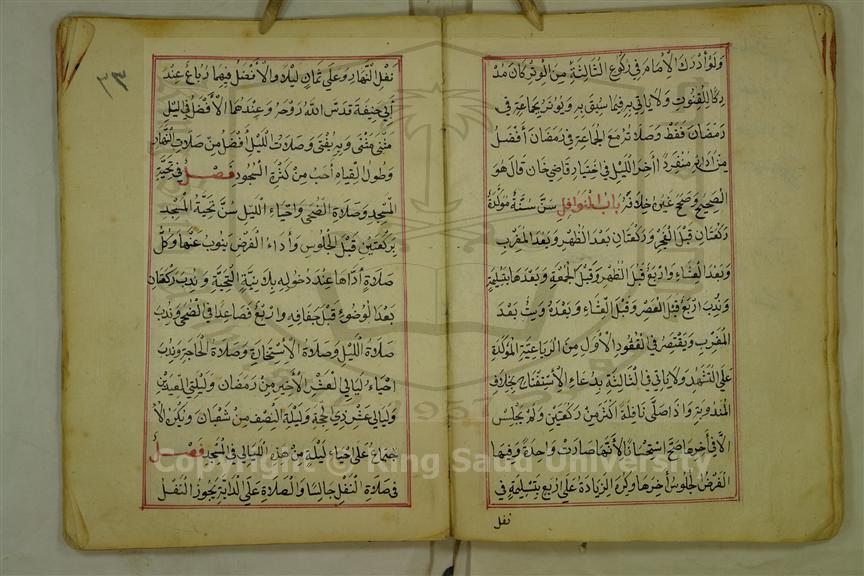 ولو أدرك الإمام في ركوع الثالثة من الوتر كان مد
ركا للقنوت ولا يأتي به فيما سبق به ويوتر بجماعة في
رمضان فقط وصلاته مع الجماعة في رمضان أفضل
من أدائه منفردا آخر الليل في اختيار قاضي خان قال هو
الصحيح وصحح غيره خلافه باب النوافل سن سنة مؤكدة
ركعتان قبل الفجر وركعتان بعد الظهر وبعد المغرب
وبعد العشاء وأربع قبل الظهر وقبل الجمعة وبعدها بتسليمة
وندب أربع قبل العصر وقبل العشاء وبعده وست بعد
المغرب ويقتصر في القعود الأول من الرباعية المؤكدة
على التشهد ولا يأتي في الثالثة بدعاء الاستفتاح بخلاف
المندوبة وإذا صلى نافلة أكثر من ركعتين ولم يجلس
إلا في آخرها صح استحسانا لأنها صارت واحدة وفيها
الفرض الجلوس آخرها وكره الزيادة على أربع بتسليمة في
نفل
٣٣
نفل النهار وعلى ثمان ليلا والأفضل فيهما رباع عند
أبي حنيفة قدس الله روحه وعندهما الأفضل في الليل
مثنى مثنى وبه يفتى وصلاة الليل أفضل من صلاة النهار
وطول القيام أحب من كثرة السجود فصل في تحية
المسجد وصلاة الضحى وإحياء الليل سن تحية المسجد
بركعتين قبل الجلوس وأداء الفرض ينوب عنها وكل
صلاة أداها عند دخوله بلا نية التحية وندب ركعتان
بعد الوضوء قبل جفافه وأربع فصاعدا في الضحى وندب
صلاة الليل وصلاة الاستخارة وصلاة الحاجة وندب
إحياء ليالي العشر الأخير من رمضان وليلتي العيدين
وليالي عشر ذي الحجة وليلة النصف من شعبان ويكره الا
جتماع على إحياء ليلة من هذه الليالي في المسجد فصل
في صلاة النفل جالسا والصلاة على الدابة يجوز النفل
Copyright © King Saud University
1957